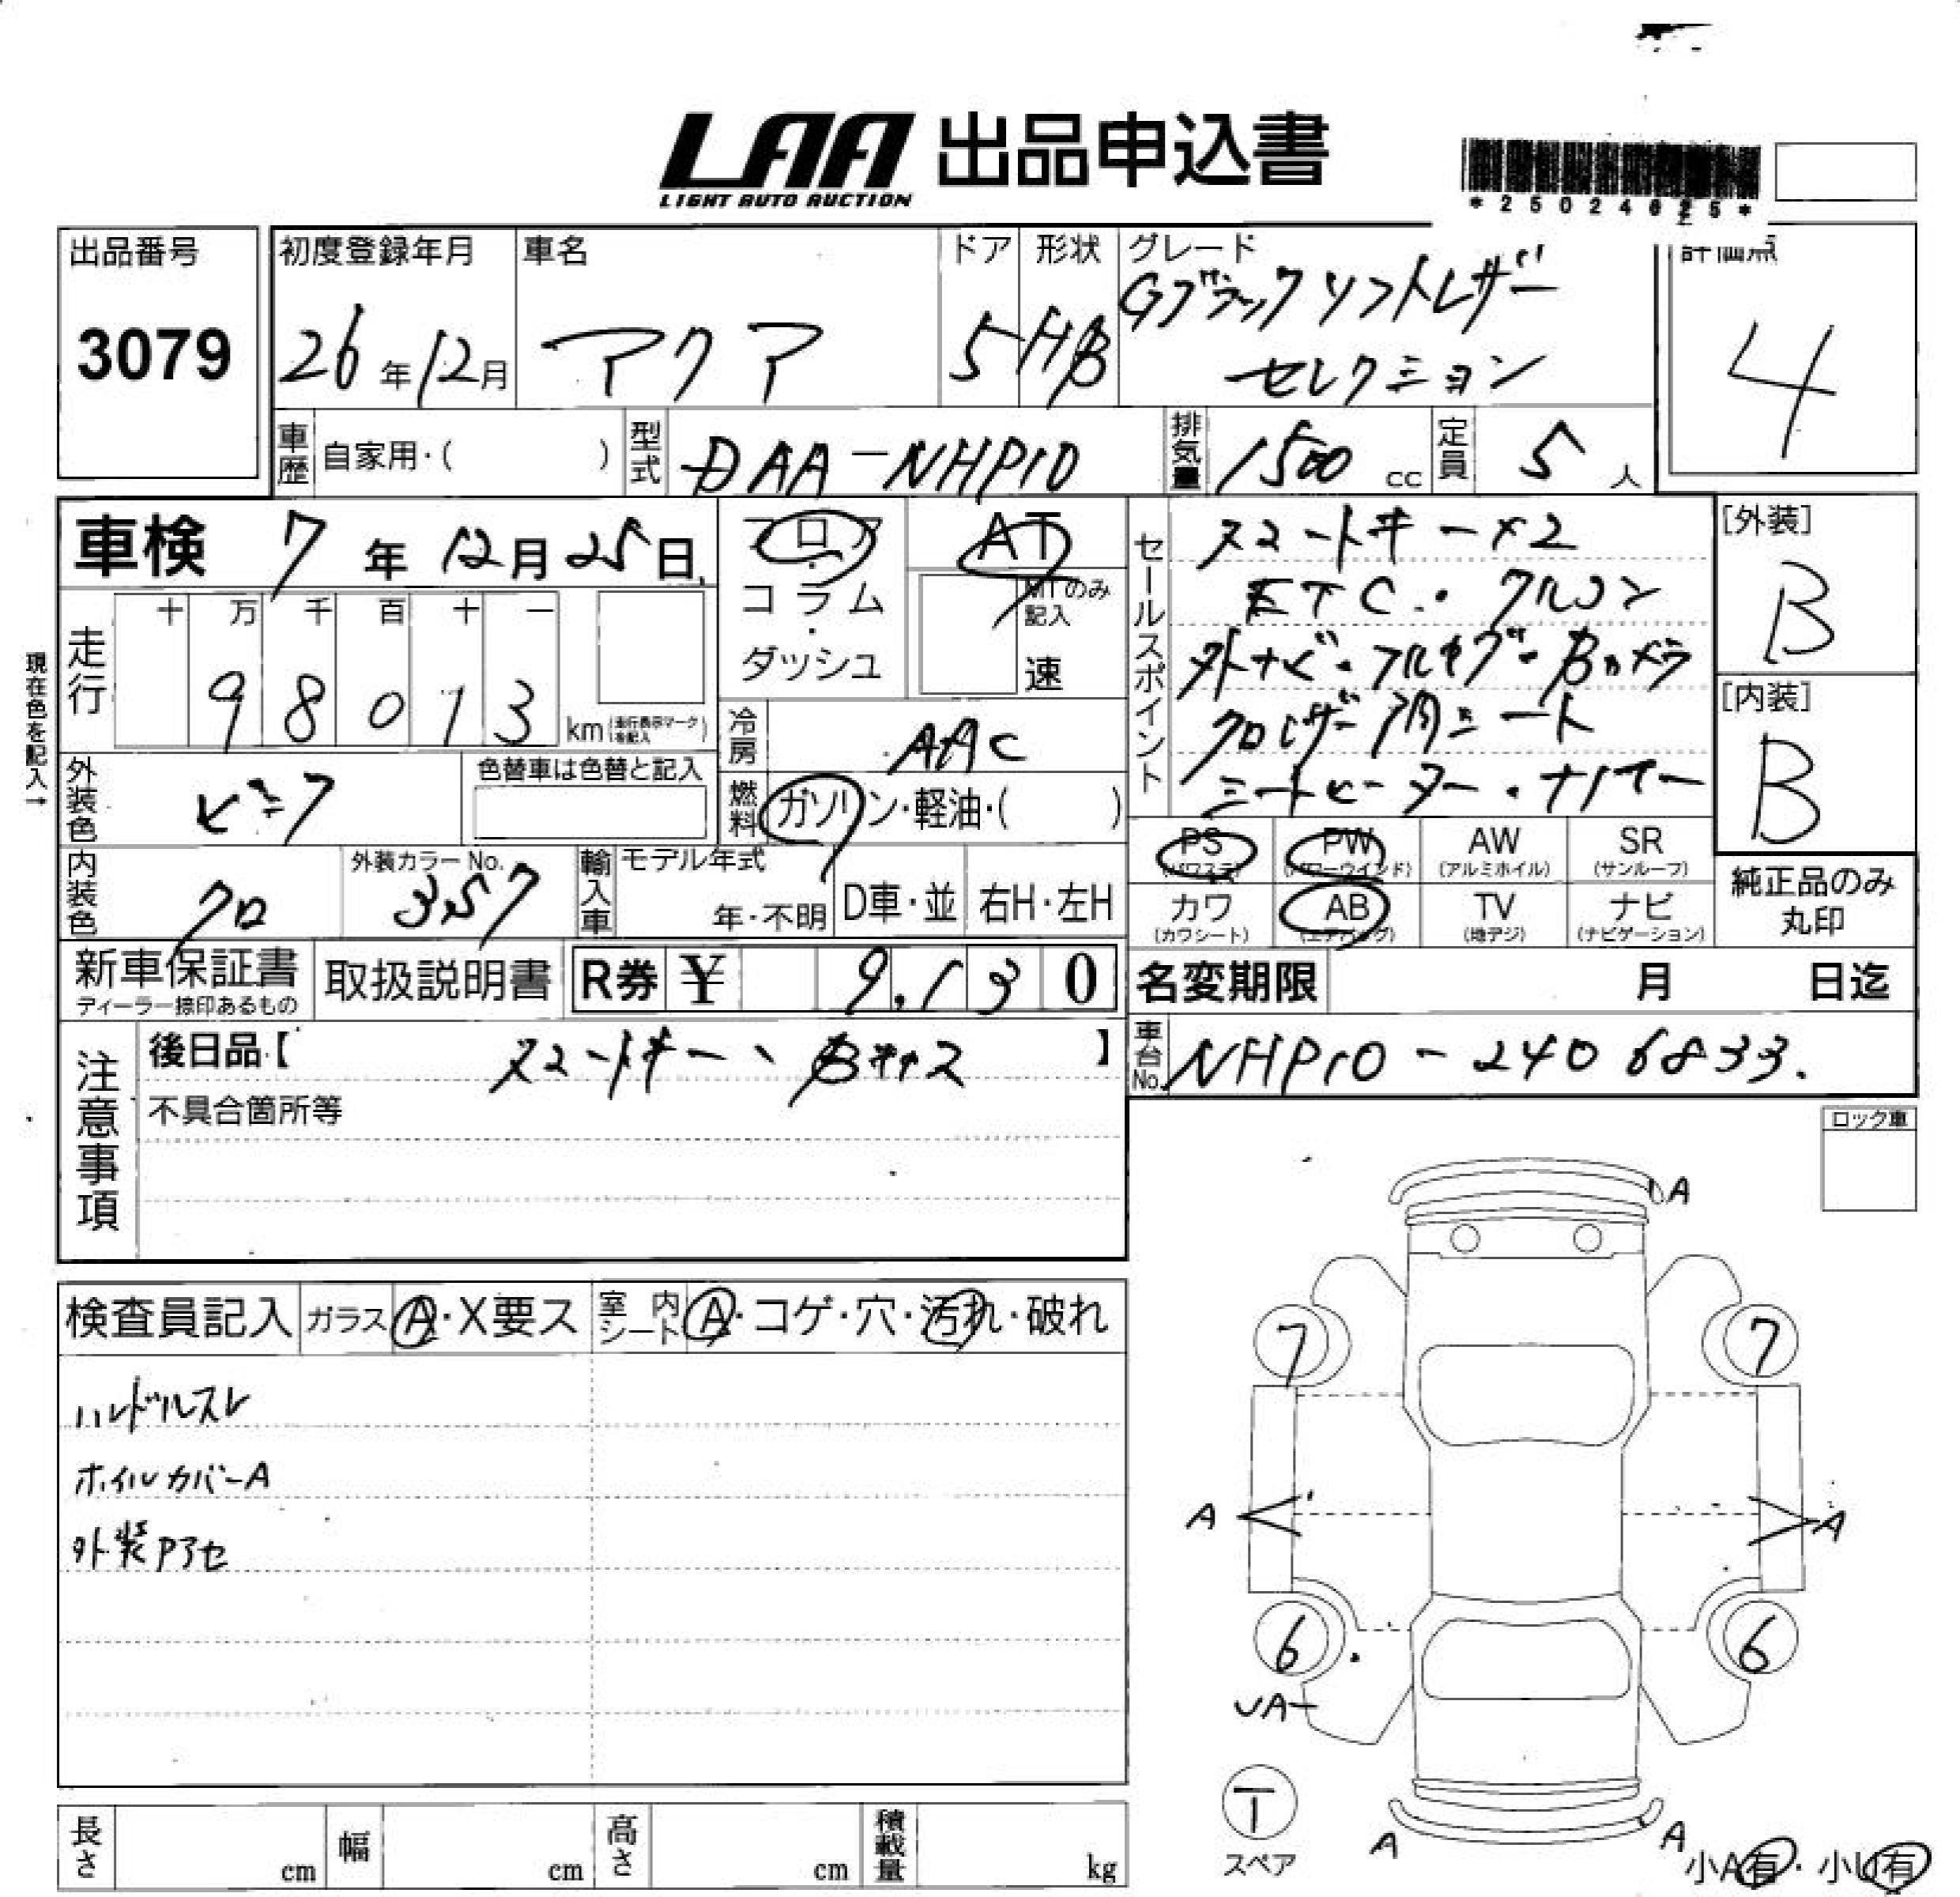 LAA 出品申込書
LIGHT AUTO AUCTION
出品番号
3079
初度登録年月
26年12月
車名
アクア
ドア
5
形状
HB
グレード
Gブラックソフトレザー
セレクション
評価点
4
車歴 自家用・( )
型式 DAA-NHP10
排気量 1500 cc
定員 5 人
車検 7年12月25日
フロア・コラム・ダッシュ
AT
MTのみ記入
速
現在色を記入→
走行
十 万 千 百 十 一
98013 km (走行表示マークを記入)
冷房 AAC
燃料 ガソリン・軽油・( )
外装色 ビミク
色替車は色替と記入
内装色 クロ
外装カラーNo. 357
輸入車
モデル年式
年・不明
D車・並
右H・左H
セールスポイント
スマートキー×2
ETC・クルコン
外ナビ・フルセグ・Bカメラ
クロレザー調シート
シートヒーター・ナノイー
[外装]
B
[内装]
B
PS (パワステ)
PW (パワーウインド)
AW (アルミホイル)
SR (サンルーフ)
カワ (カワシート)
AB (エアバッグ)
TV (地デジ)
ナビ (ナビゲーション)
純正品のみ
丸印
新車保証書
ディーラー捺印あるもの
取扱説明書
R券 ¥ 9,130
名変期限 月 日迄
車台No. NHP10-2406833.
注意事項
後日品【 スマートキー、Bキャス 】
不具合箇所等
ロック車
検査員記入
ガラス A・X要ス
室内シート A・コゲ・穴・汚れ・破れ
ハンドルスレ
ホイルカバーA
外装Pアセ
A
7 7
A A
6 6
UA
T
スペア
A A
小A有・小U有
長さ cm
幅 cm
高さ cm
積載量 kg